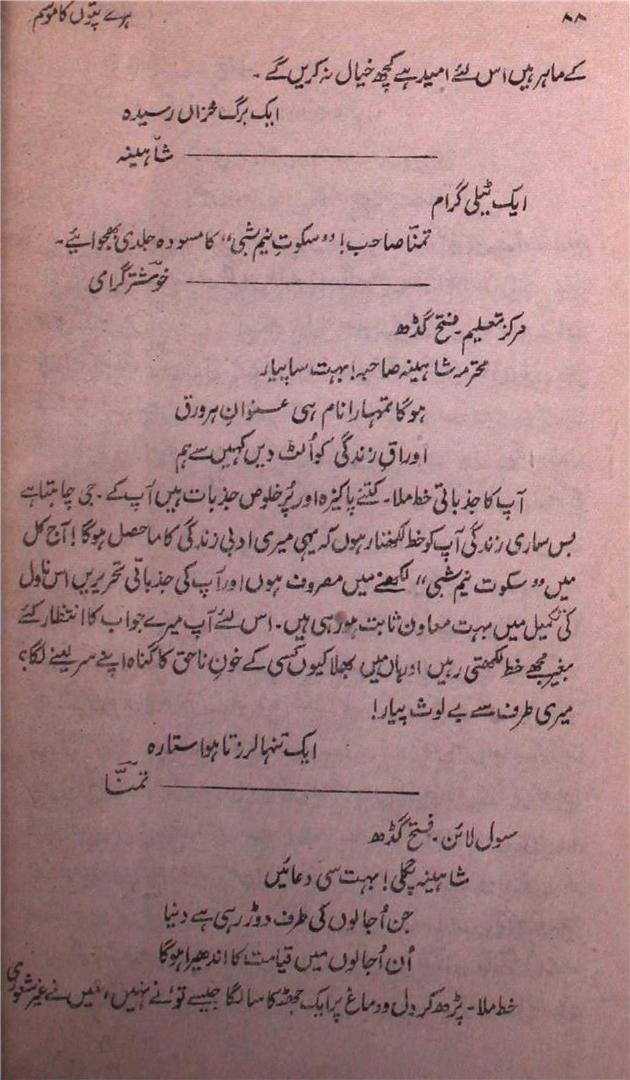 ۸۸
ہرے پتوں کا موسم
کے ماہر ہیں اس لئے امید ہے کچھ خیال نہ کریں گے۔
ایک برگ خزاں رسیدہ
شاہینہ
ایک ٹیلی گرام
تمنّا صاحب! "سکوتِ نیم شبی" کا مسودہ جلدی بھجوائیے۔
خوشتر گرامی
مرکز تعلیم۔ فتح گڈھ
محترمہ شاہینہ صاحبہ! بہت سا پیار
ہوگا تمہارا نام ہی عنوانِ ہر ورق
اوراقِ زندگی کو اُلٹ دیں کہیں سے ہم
آپ کا جذباتی خط ملا۔ کتنے پاکیزہ اور پُر خلوص جذبات ہیں آپ کے۔ جی چاہتا ہے
بس ساری زندگی آپ کو خط لکھتا رہوں کہ یہی میری ادبی زندگی کا ماحصل ہوگا! آج کل
میں "سکوت نیم شبی" لکھنے میں مصروف ہوں اور آپ کی جذباتی تحریریں اس ناول
کی تکمیل میں بہت معاون ثابت ہو رہی ہیں۔ اس لئے آپ میرے جواب کا انتظار کئے
بغیر مجھے خط لکھتی رہیں اور ہاں میں بھلا کیوں کسی کے خونِ ناحق کا گناہ اپنے سر لینے لگا؟
میری طرف سے بے لوث پیار!
ایک تنہا لرزتا ہوا ستارہ
تمنّا
سول لائن۔ فتح گڈھ
شاہینہ پگلی! بہت سی دعائیں
جن اُجالوں کی طرف دوڑ رہی ہے دنیا
اُن اُجالوں میں قیامت کا اندھیرا ہوگا
خط ملا۔ پڑھ کر دل و دماغ پر ایک جھٹکا سا لگا جیسے تو نے نہیں، میں نے غیر شعوری